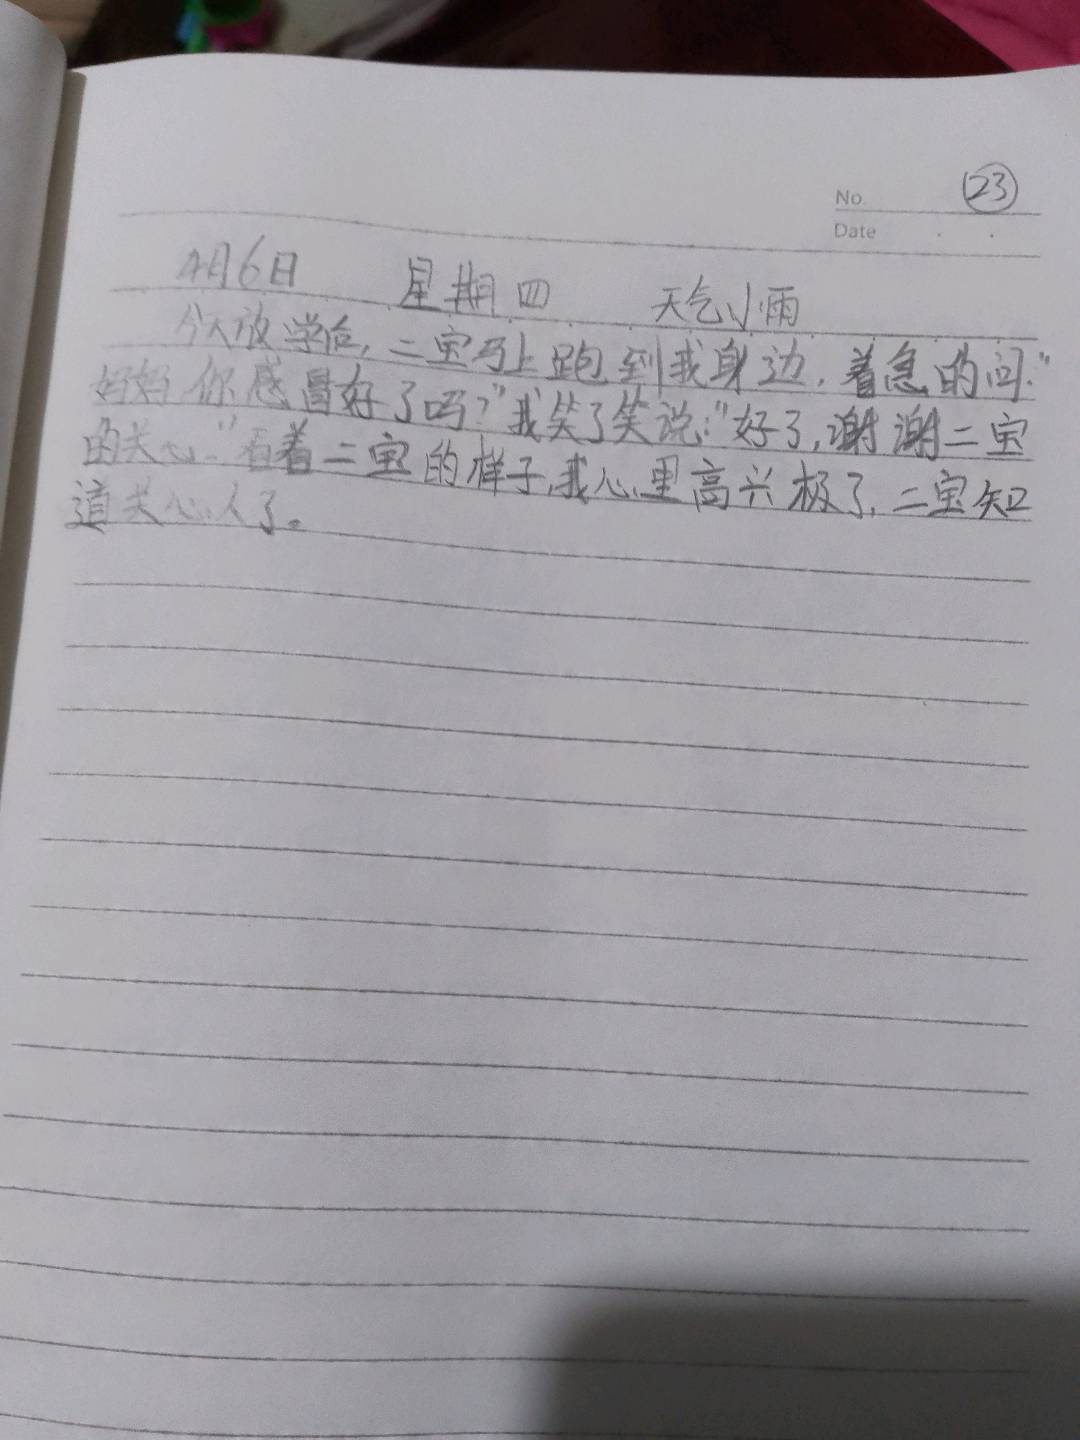 No. 23
Date
4月6日 星期四 天气小雨
今天放学后,二宝马上跑到我身边,着急的问:"
妈妈你感冒好了吗?"我笑了笑说:"好了,谢谢二宝
的关心."看着二宝的样子,我心里高兴极了,二宝知
道关心人了。